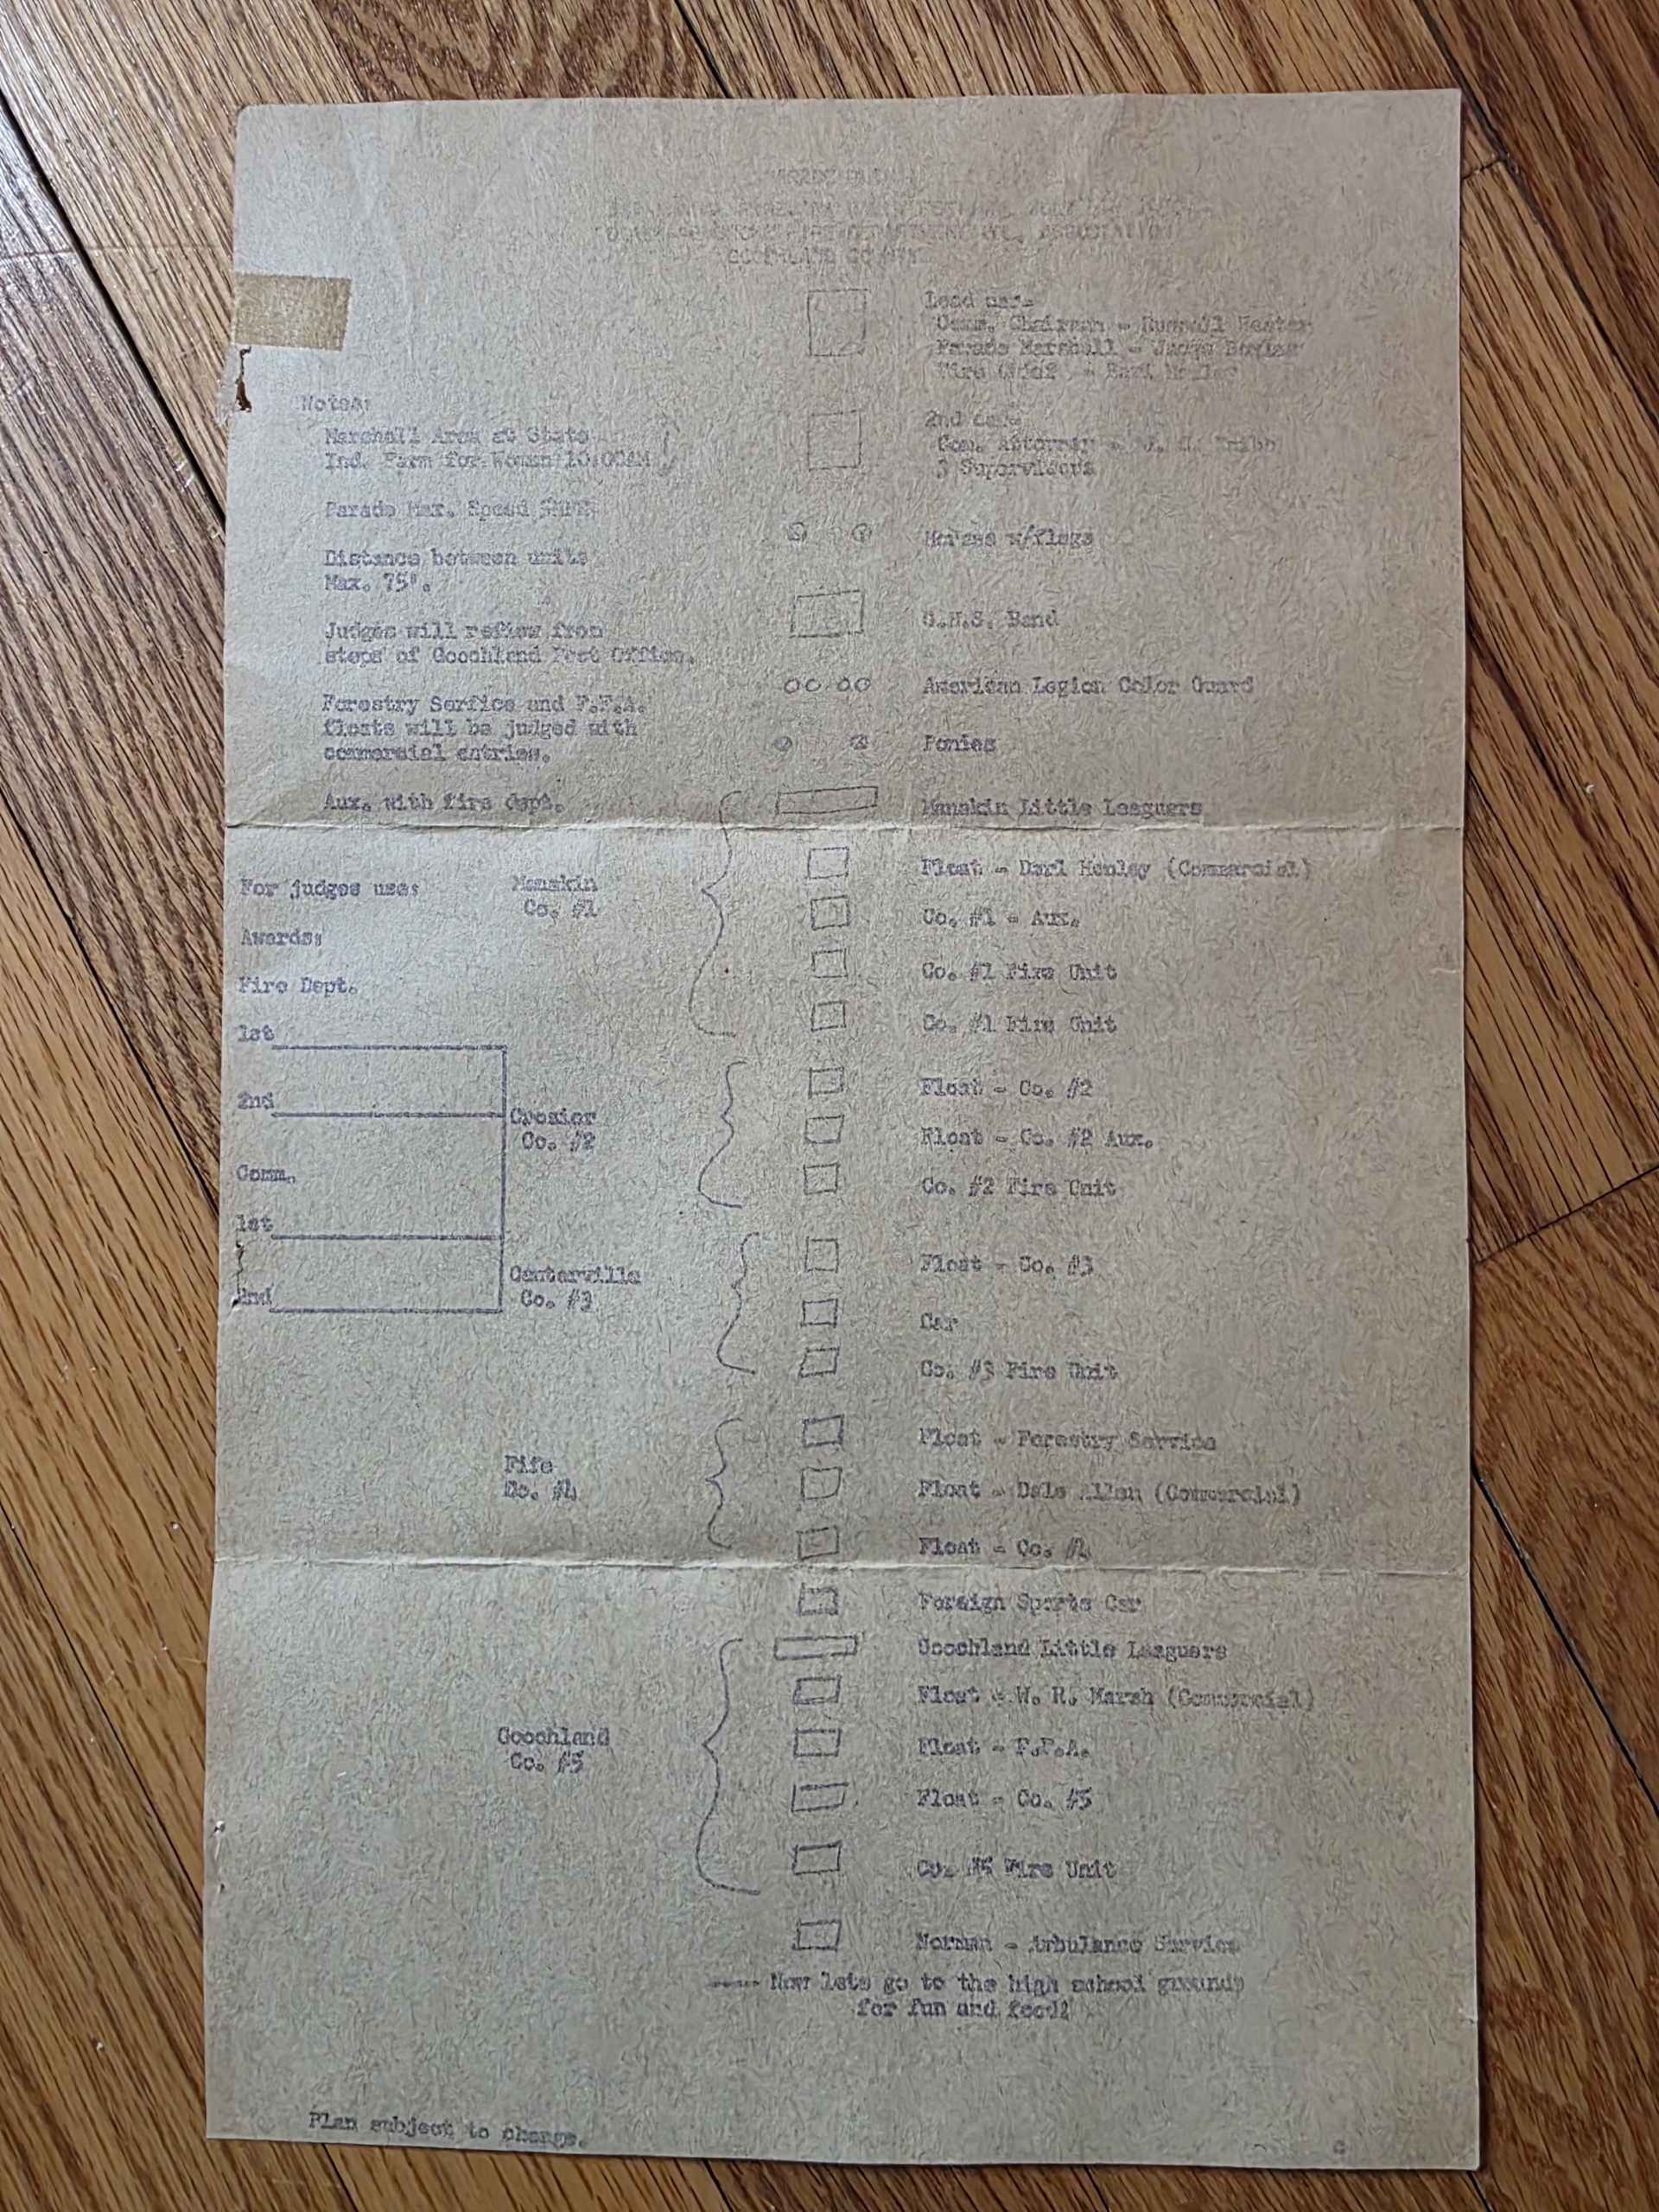 FIRE DEPARTMENT
ASSOCIATION
GOOCHLAND COUNTY
Lead car-
Comm. Chairman - Russell
Parade Marshall - Judge
Fire Chief - Earl
Notes:
Marshall Area at State
Ind. Farm for Women 10:00AM
2nd car-
Com. Attorney -
3 Supervisors
Parade Max. Speed 5MPH
Horses w/flags
Distance between units
Max. 75'.
G.H.S. Band
Judges will refiew from
steps of Goochland Post Office.
American Legion Color Guard
Forestry Serfice and F.F.A.
floats will be judged with
commercial entries.
Ponies
Aux. with fire dept.
Manakin Little Leaguers
For judges use:
Manakin
Co. #1
Float - Darl Henley (Commercial)
Co. #1 - Aux.
Awards:
Co. #1 Fire Unit
Fire Dept.
Co. #1 Fire Unit
1st
Float - Co. #2
2nd
Crozier
Co. #2
Float - Co. #2 Aux.
Comm.
Co. #2 Fire Unit
1st
Float - Co. #3
2nd
Centerville
Co. #3
Car
Co. #3 Fire Unit
Float - Forestry Service
Fife
Co. #4
Float - Dale Allen (Commercial)
Float - Co. #4
Foreign Sports Car
Goochland Little Leaguers
Float - W. R. Marsh (Commercial)
Goochland
Co. #5
Float - F.F.A.
Float - Co. #5
Co. #5 Fire Unit
Norman - Ambulance Service
---- Now lets go to the high school grounds
for fun and food!
Plan subject to change.